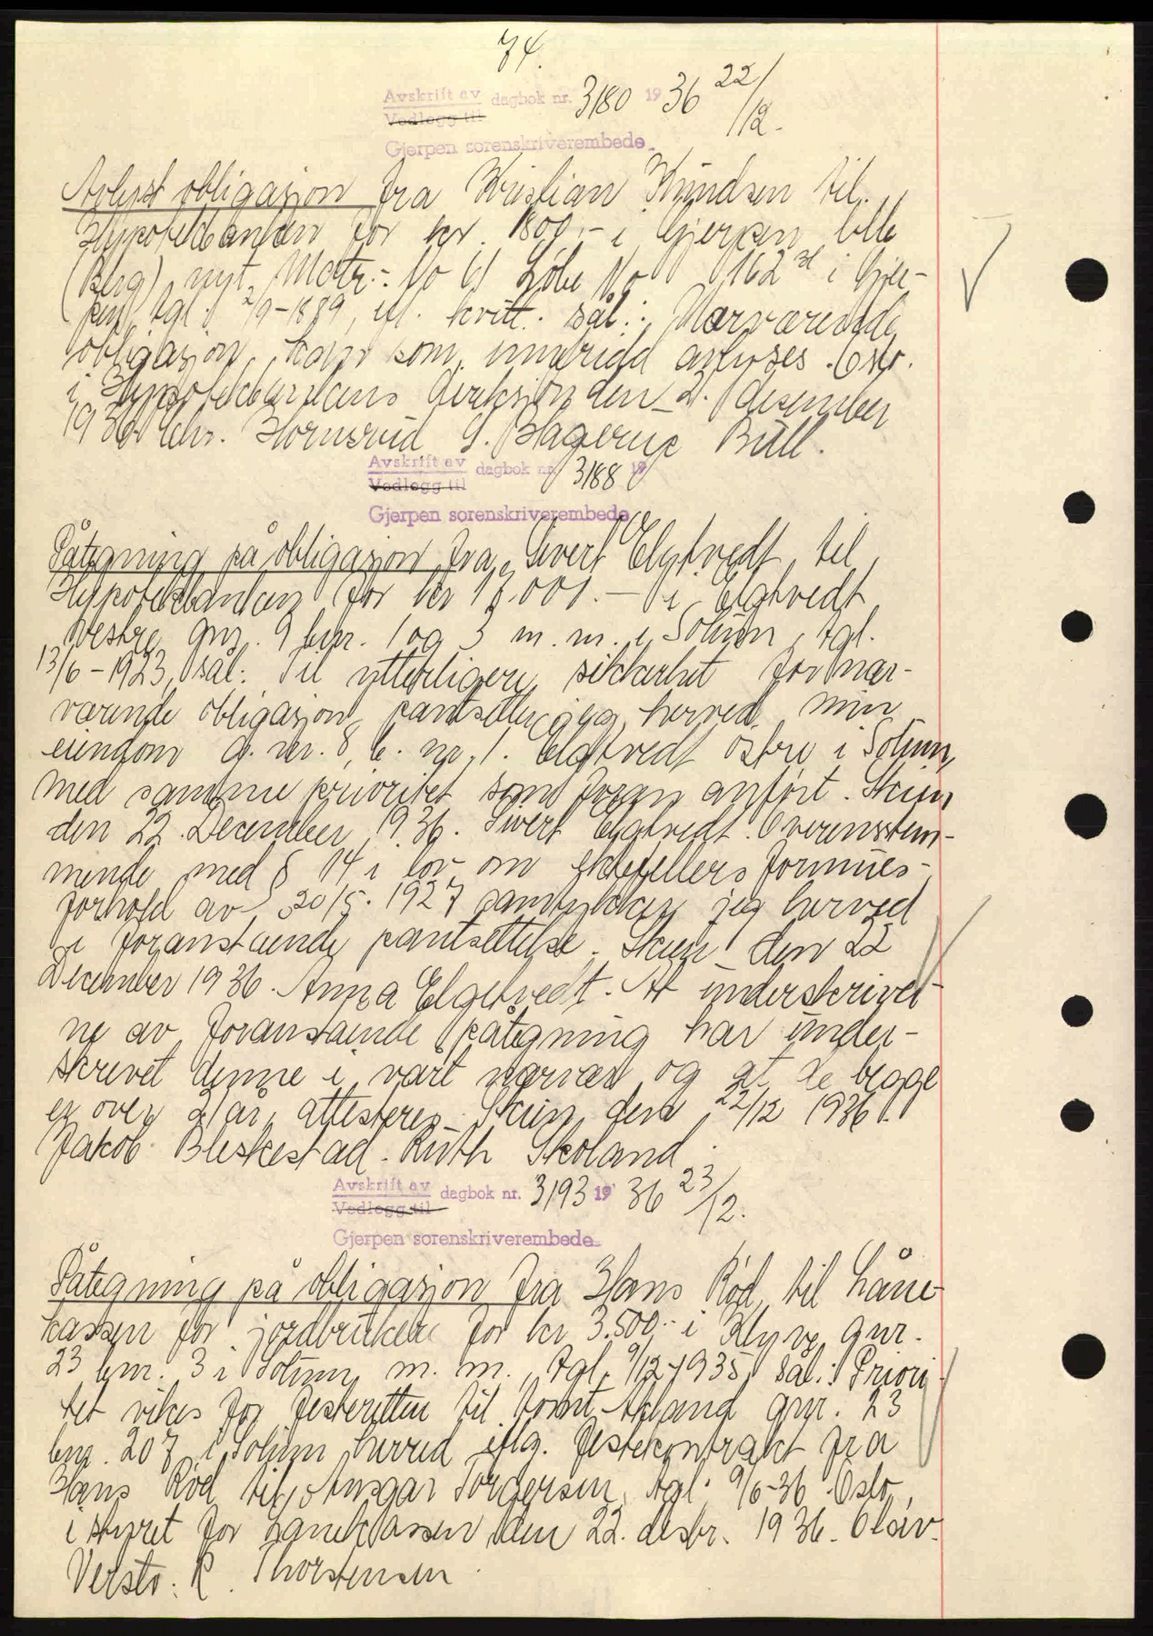 74.
Avskrift av dagbok nr. 3180 1936 22/12.
Vedlegg til
Gjerpen sorenskriverembede.
Avlyst obligasjon fra Kristian Knudsen til
Hypotekbanken for kr. 1800,- i Gjerpen
(Berg) nyt Matr.- No 61 Løbe No 162 i Gjer-
pen, tgl. 2/9-1889, kvitt. sål.: Nærværende
obligasjon kan som innridd avlyses. Oslo.
i Hypotekbankens direksjon den 2. desember
1936. Chr. Hornsrud S. Bagerup Bull.
Avskrift av dagbok nr. 3188 19
Vedlegg til
Gjerpen sorenskriverembede
Påtegning på obligasjon fra Sivert Elgtvedt til
Hypotekbanken for kr 17.001.- i Elgtvedt
vestre gnr. 9 bnr. 1 og 3 m. m. i Solum, tgl.
13/6-1923, sål: Til ytterligere sikkerhet for nær-
værende obligasjon pantsetter jeg herved min
eiendom g. nr. 8, b. nr. 1. Elgtvedt østre i Solum,
med samme prioritet som foran anført. Skien
den 22. December 1936. Sivert Elgtvedt. Overenstem-
mende med § 14 i lov om ektefellers formues-
forhold av 20/5. 1927 samtykker jeg herved
i foranstående pantsettelse. Skien den 22
December 1936. Anna Elgetvedt. At underskriver-
ne av foranstående påtegning har under-
skrevet denne i vårt nærvær og at de begge
er over 21 år, attesteres. Skien den 22/12 1936.
Jakob Bleskestad. Ruth Skoland.
Avskrift av dagbok nr. 3193 1936 23/12.
Vedlegg til
Gjerpen sorenskriverembede
Påtegning på obligasjon fra Hans Rød til Låne-
kassen for jordbrukere for kr 3.500.- i Klyve, gnr.
23 bnr. 3 i Solum m. m., tgl. 9/12-1935, sål.: Priori-
tet vikes for festeretten til tomt gnr. 23
bnr. 207 i Solum herred iflg. festekontrakt fra
Hans Rød til Ansgar Torgersen, tgl. 9/6-36. Oslo,
i styret for Lånekassen den 22. desbr. 1936. Olav
Versto. R. Thorstensen.